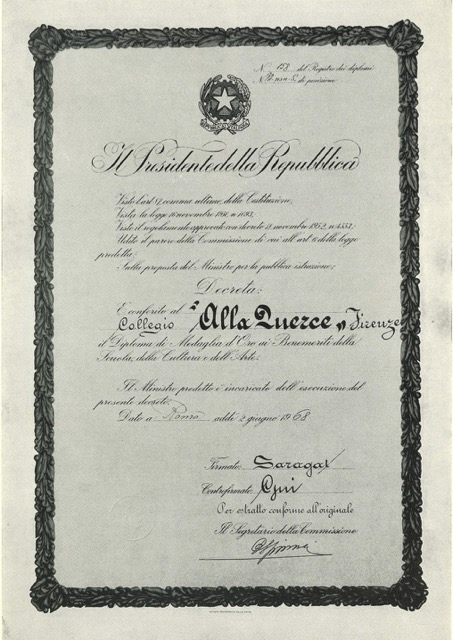 N. 153 del Registro dei diplomi
di posizione
Il Presidente della Repubblica
Visto l'art. 87, comma ultimo, della Costituzione;
Vista la legge 16 novembre 1950, n. 1093;
Visto il regolamento approvato con decreto 12 novembre 1952, n. 4552;
Udito il parere della Commissione di cui all'art. 6 della legge
predetta;
Sulla proposta del Ministro per la pubblica istruzione;
Decreta:
È conferito al
Collegio "Alla Querce" Firenze
il Diploma di Medaglia d'Oro ai Benemeriti della
Scuola, della Cultura e dell'Arte.
Il Ministro predetto è incaricato dell'esecuzione del
presente decreto.
Dato a Roma addì 2 giugno 1968
Firmato: Saragat
Controfirmato: Gui
Per estratto conforme all'originale
Il Segretario della Commissione